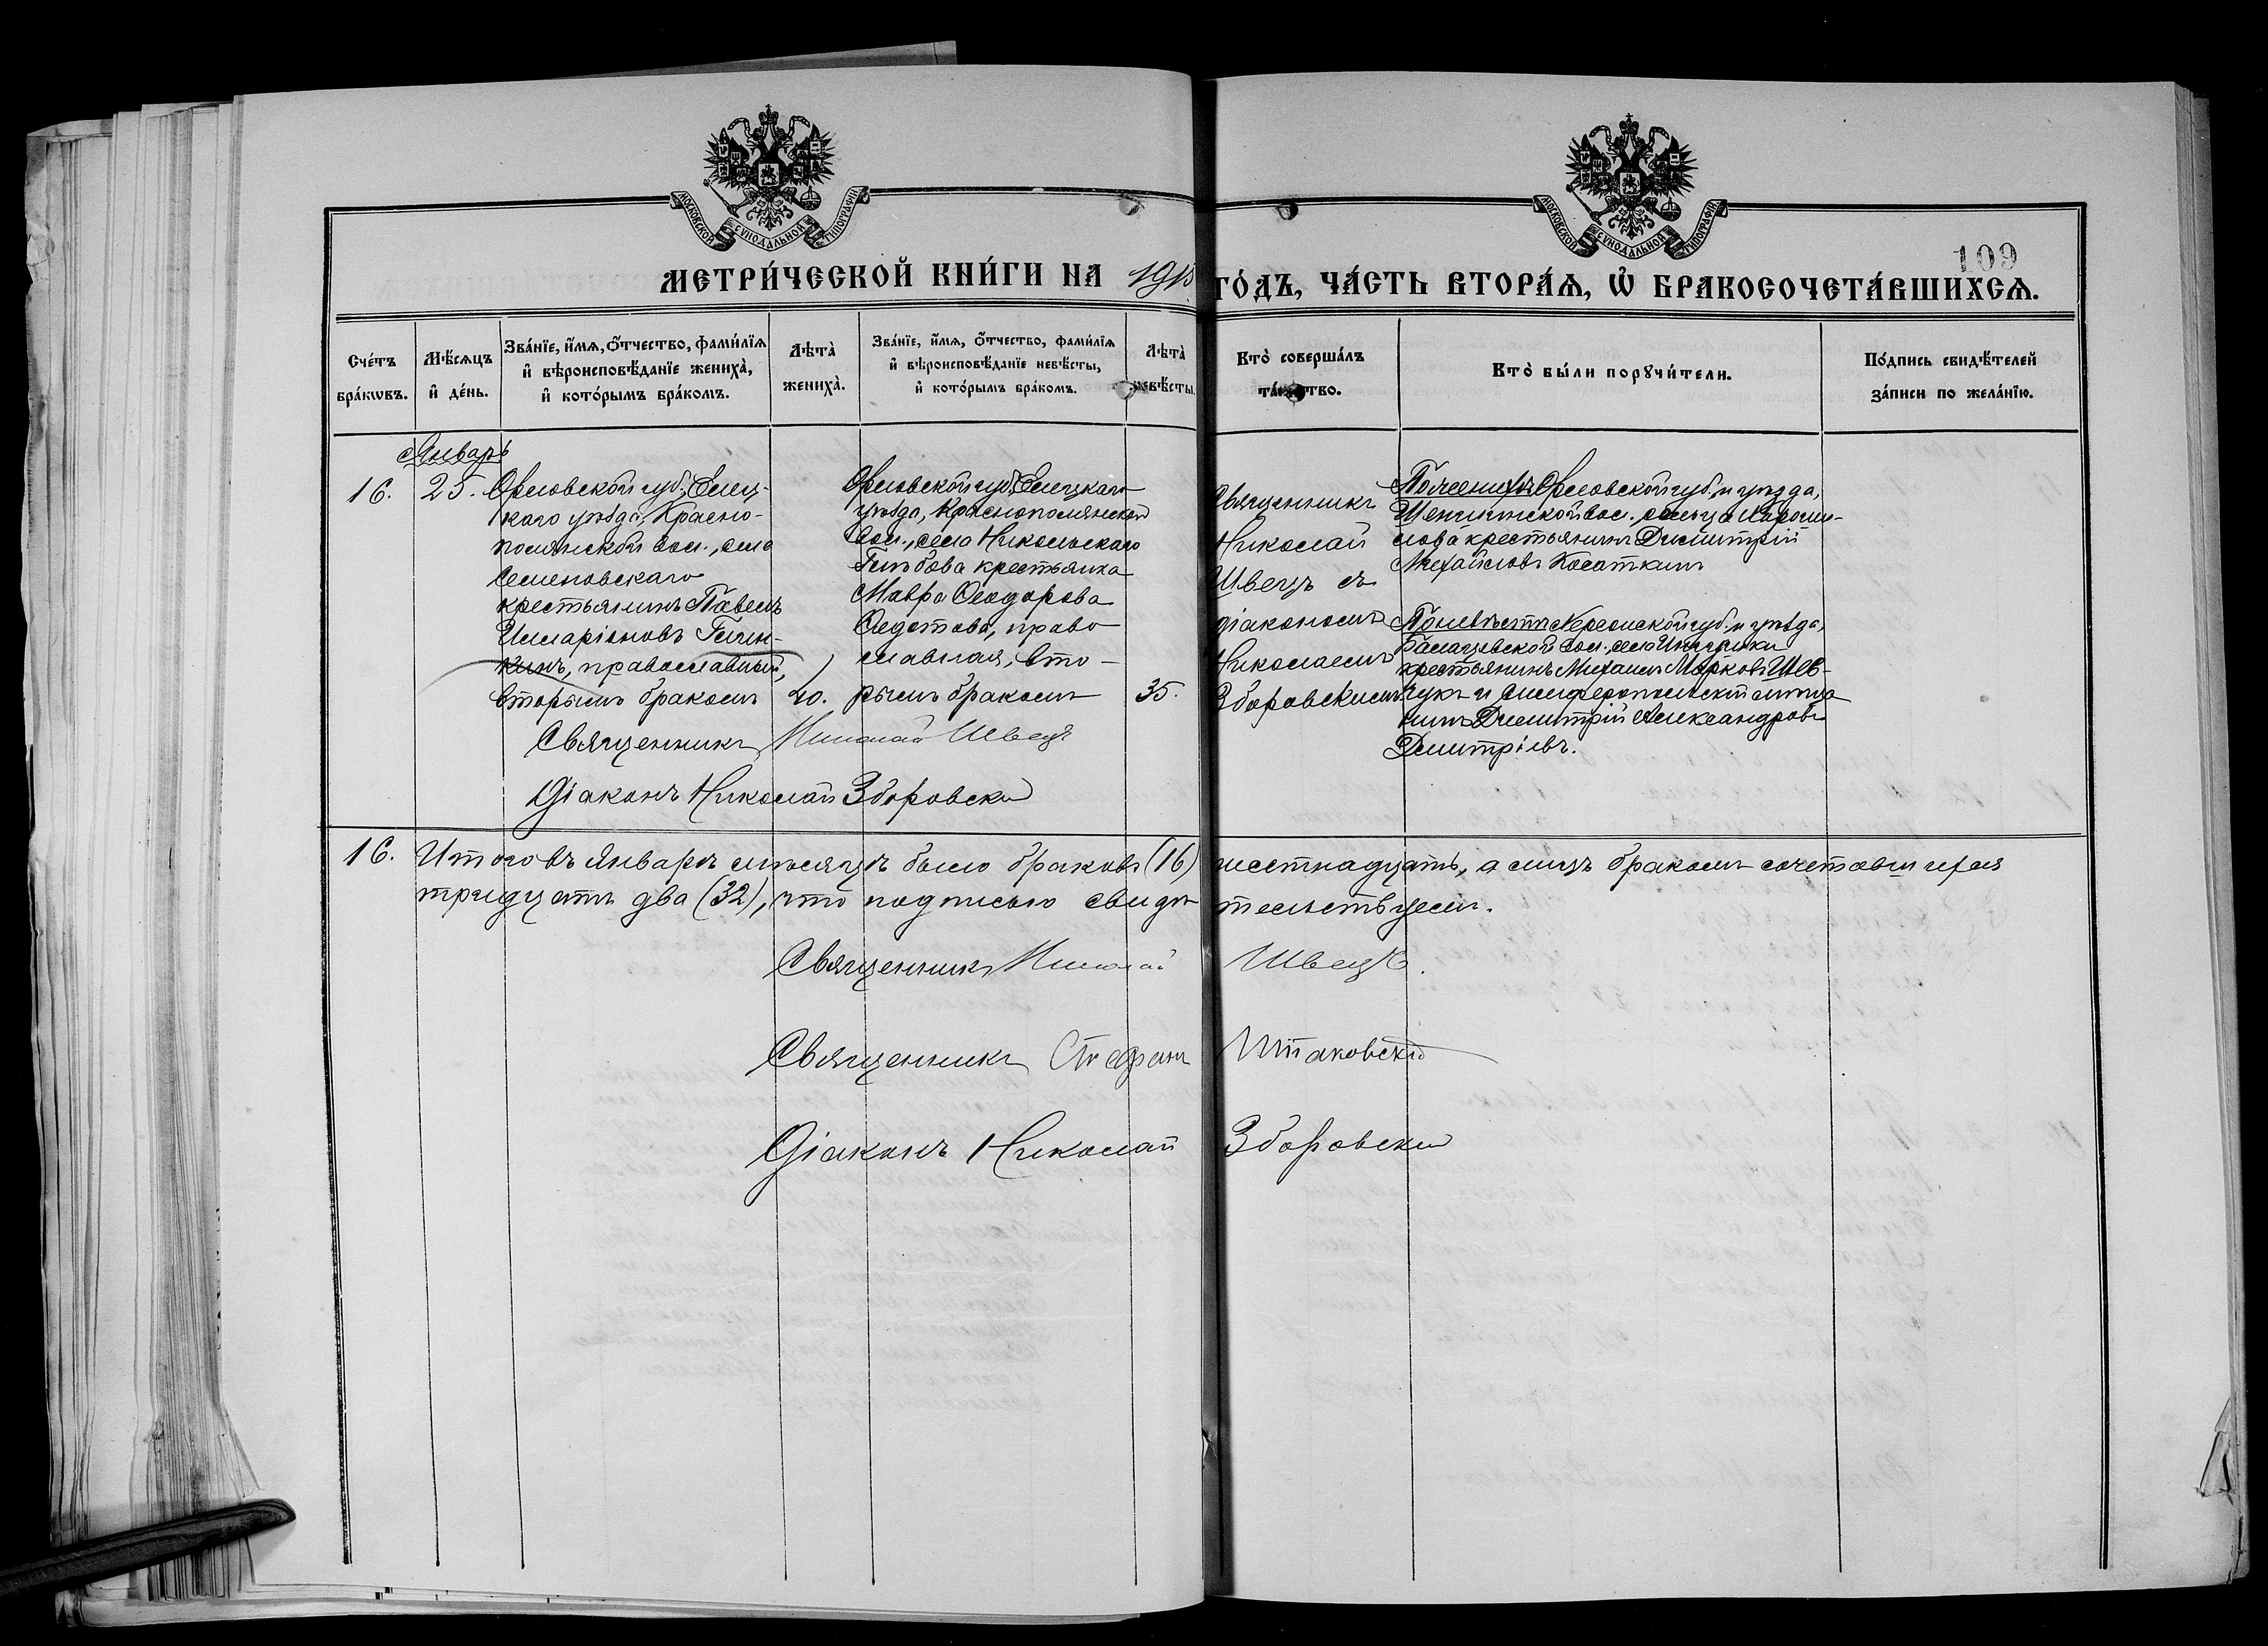 МОСКОВСКОЙ СѴНОДАЛЬНОЙ ТИПОГРАФІИ
МОСКОВСКОЙ СѴНОДАЛЬНОЙ ТИПОГРАФІИ
109
МЕТРИ́ЧЕСКОЙ КНИ́ГИ НА 1915 ГО́ДЪ, ЧА́СТЬ ВТОРА́Ѧ, Ѡ҆ БРАКОСОЧЕТА́ВШИХСѦ.
Сче́тъ
бра́кѡвъ.
Мѣ́сяцъ
и҆ де́нь.
Зва́нїе, и҆́мѧ, о҆́тчество, фами́лїѧ
и҆ вѣроисповѣ́данїе жениха̀,
и҆ кото́рымъ бра́комъ.
Лѣта̀
жениха̀.
Зва́нїе, и҆́мѧ, о҆́тчество, фами́лїѧ
и҆ вѣроисповѣ́данїе невѣ́сты,
и҆ кото́рымъ бра́комъ.
Лѣта̀
невѣ́сты.
Кто̀ соверша́лъ
та́инство.
Кто̀ бы́ли порꙋчи́тели.
По́дпись свидѣ́телей
за́писи по жела́нїю.
Январь
16.
25.
Орловской губ., Елец-
каго уѣзда, Красно-
полянской вол., села
Семеновскаго
крестьянинъ Павелъ
Илларіоновъ
кинъ, православный,
вторымъ бракомъ
40.
Орловской губ. Елецкаго
уѣзда, Краснополянской
вол., села Никольскаго
крестьянка
Мавра Ѳеодорова
Ѳедотова, право
славная, вто-
рымъ бракомъ
35.
Священникъ
Николай
Швецъ съ
діакономъ
Николаемъ
Зборовскимъ
По женихѣ Орловской губ. и уѣзда,
вол. сельца
крестьянинъ Димитрій
Михайловъ Косаткинъ
По невѣстѣ Херсонской губ. и уѣзда,
вол. села
крестьянинъ Михаилъ Марковъ Шев-
чукъ и симферопольскій мѣща
нинъ Димитрій Александровъ
Димитріевъ.
Священникъ Николай Швецъ
Діаконъ Николай Зборовскій
16. Итого въ Январѣ мѣсяцѣ было браковъ (16) шестнадцать, а лицъ бракомъ сочетавшихся
тридцать два (32), что подписью свидѣтельствуемъ.
Священникъ Николай Швецъ.
Священникъ Стефанъ
Діаконъ Николай Зборовскій